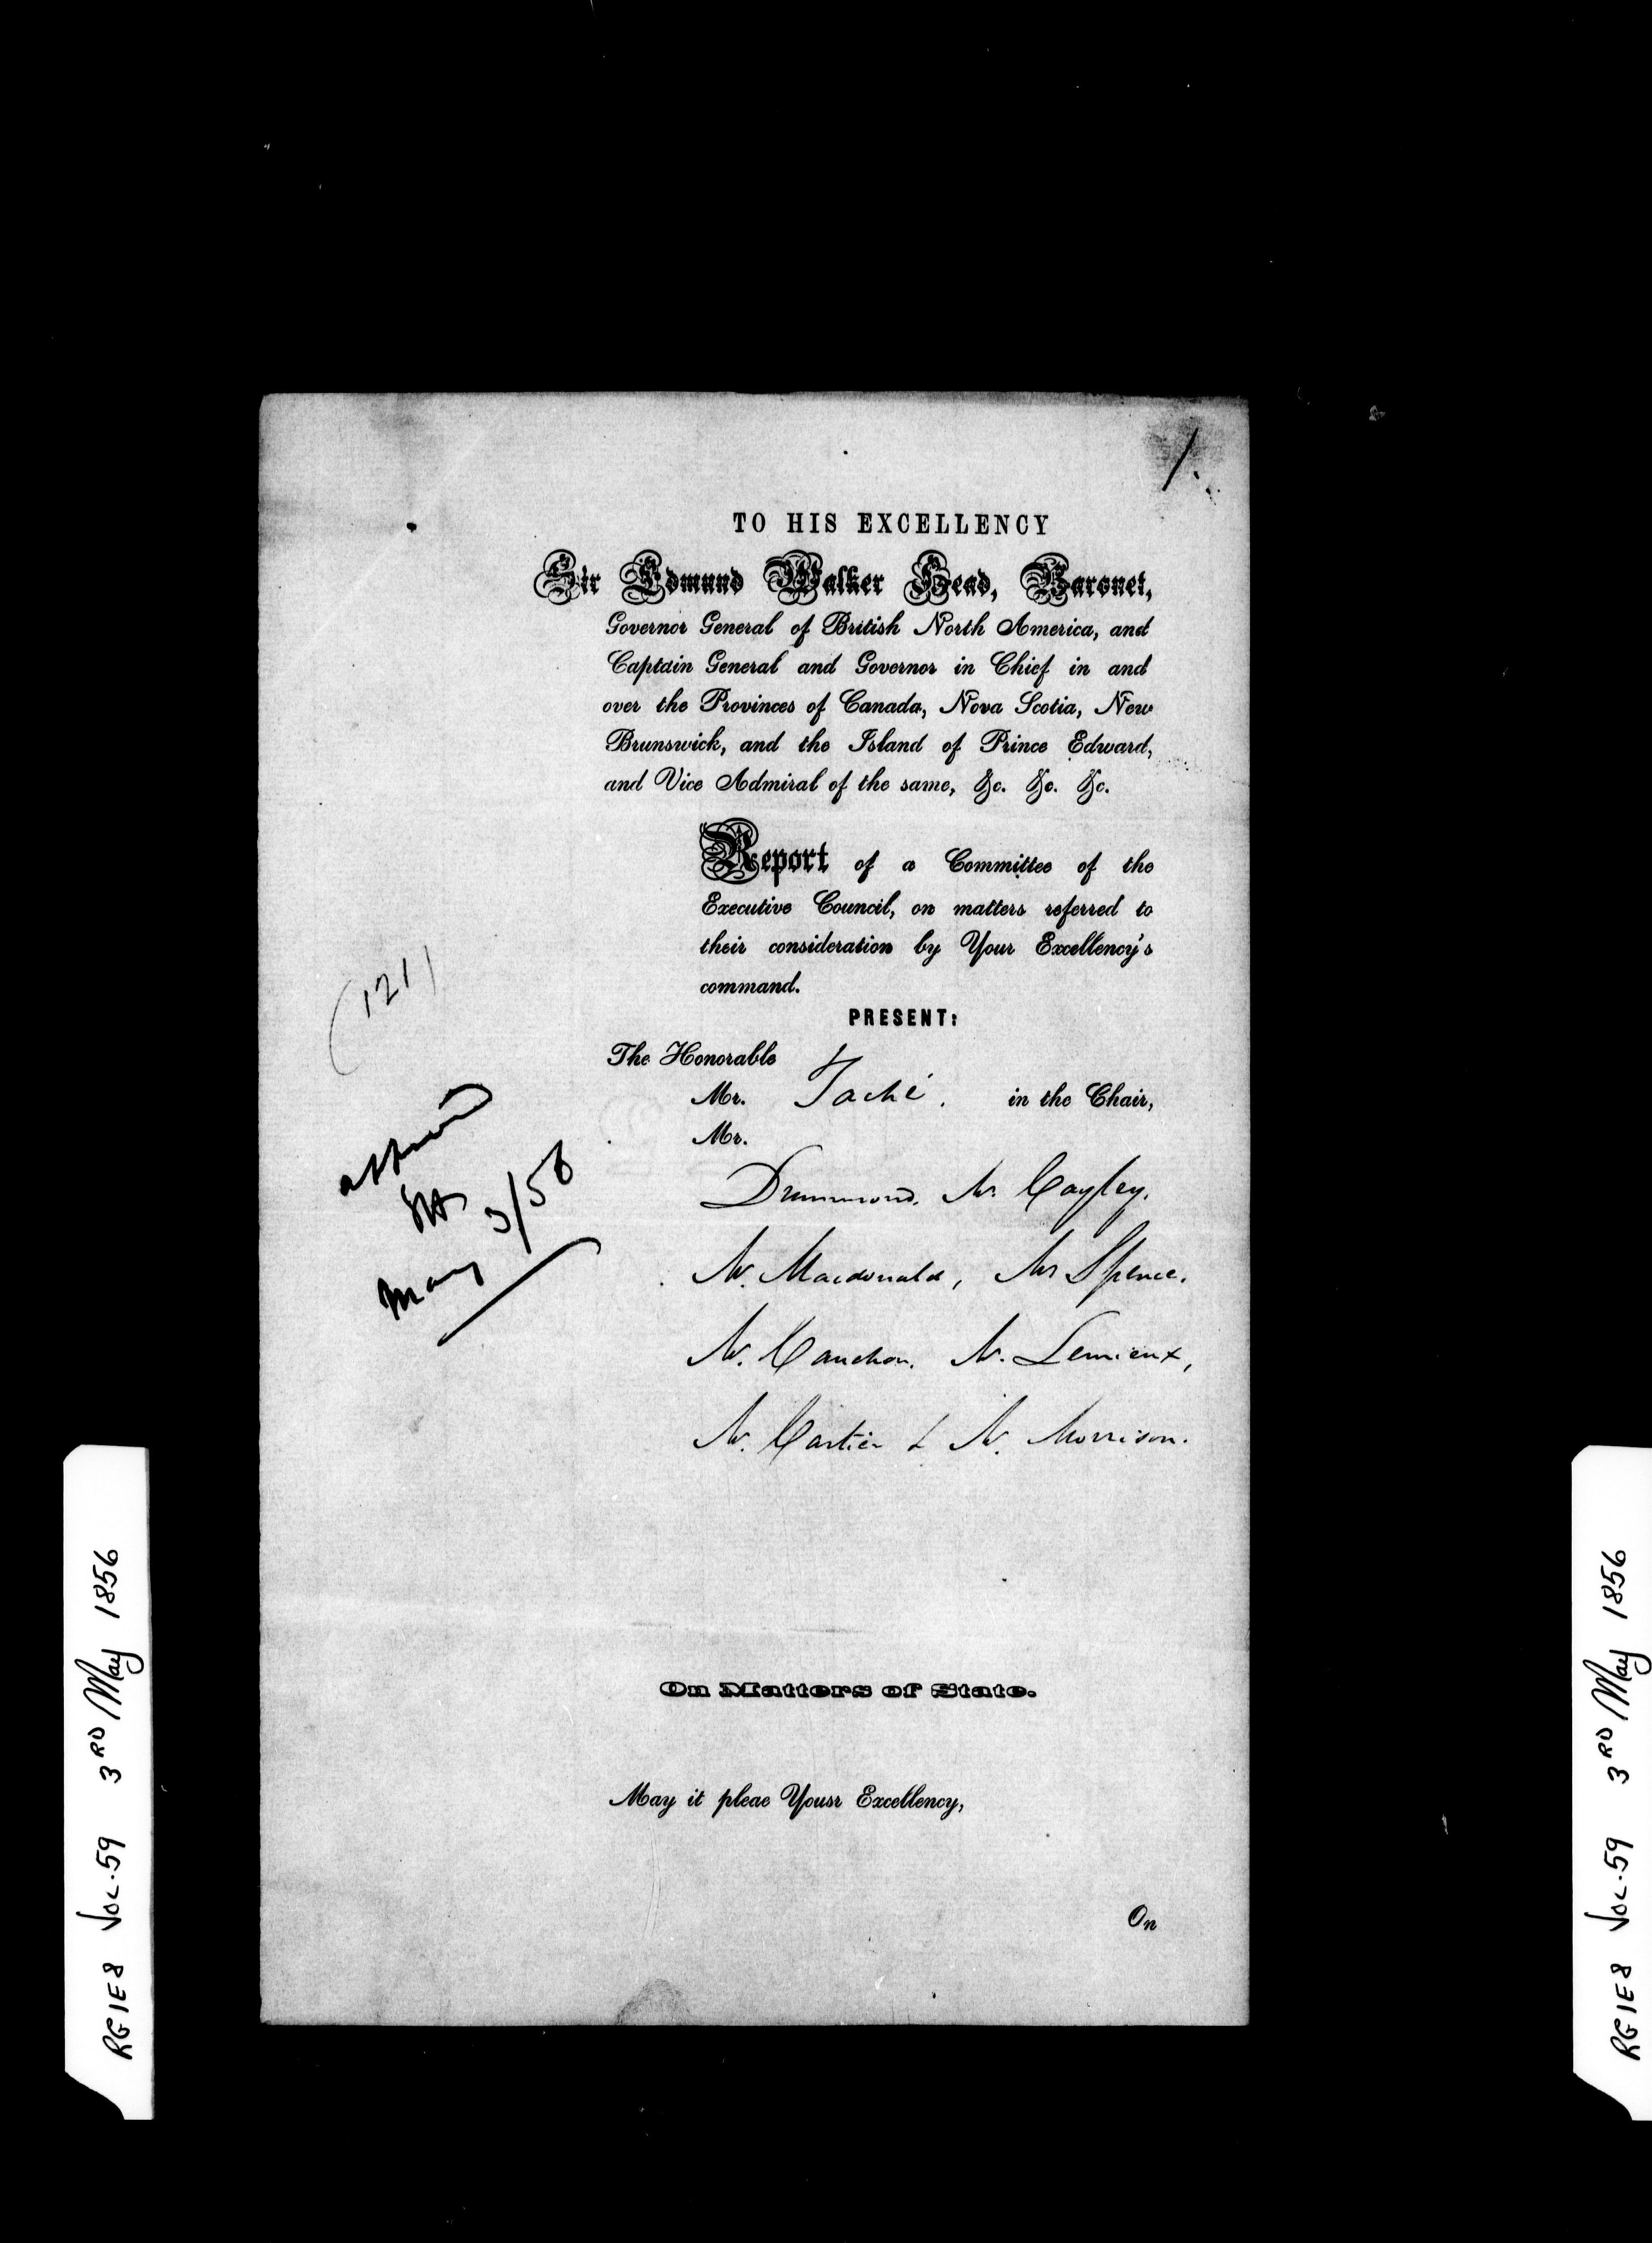 1.
TO HIS EXCELLENCY
Sir Edmund Walker Head, Baronet,
Governor General of British North America, and
Captain General and Governor in Chief in and
over the Provinces of Canada, Nova Scotia, New
Brunswick, and the Island of Prince Edward,
and Vice Admiral of the same, &c. &c. &c.
Report of a Committee of the
Executive Council, on matters referred to
their consideration by Your Excellency's
command.
PRESENT:
The Honorable
Mr. Taché. in the Chair,
Mr.
Drummond. Mr. Cayley.
Mr. Macdonald, Mr Spence.
Mr. Cauchon. Mr. Lemieux,
Mr. Cartier & Mr. Morrison.
(121)
May 3/56
On Matters of State.
May it pleae Yousr Excellency,
On
RG1E8 VOL.59 3RD May 1856
RG1E8 VOL.59 3RD May 1856